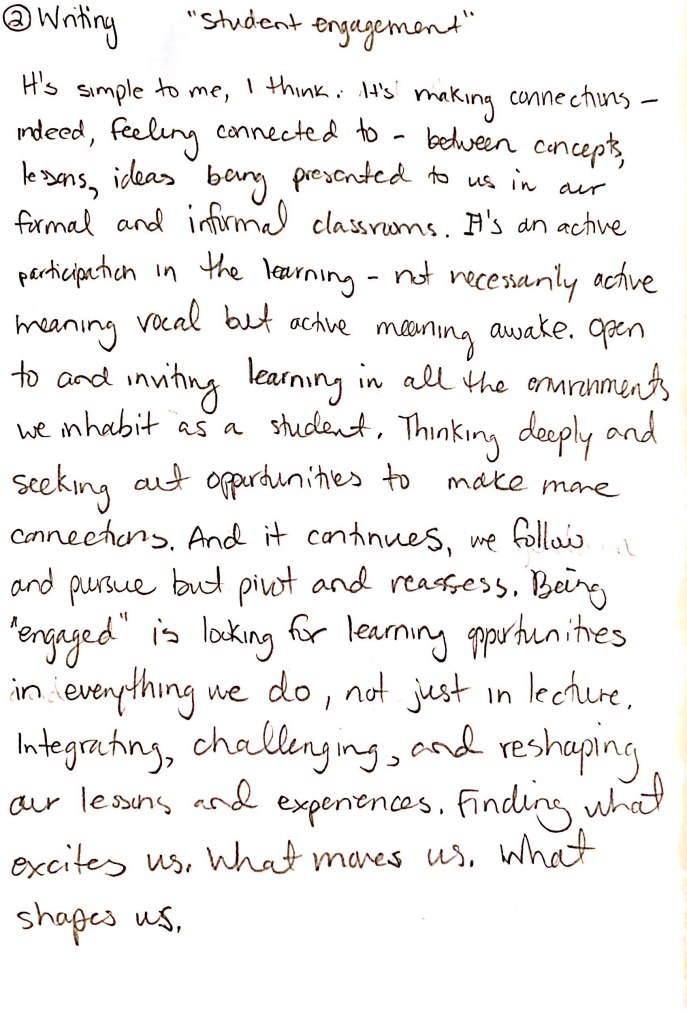 ② Writing "Student engagement"
It's simple to me, I think. It's making connections –
indeed, feeling connected to – between concepts,
lessons, ideas being presented to us in our
formal and informal classrooms. It's an active
participation in the learning – not necessarily active
meaning vocal but active meaning awake. Open
to and inviting learning in all the environments
we inhabit as a student. Thinking deeply and
seeking out opportunities to make more
connections. And it continues, we follow
and pursue but pivot and reassess. Being
"engaged" is looking for learning opportunities
in everything we do, not just in lecture.
Integrating, challenging, and reshaping
our lessons and experiences. Finding what
excites us. What moves us. What
shapes us.